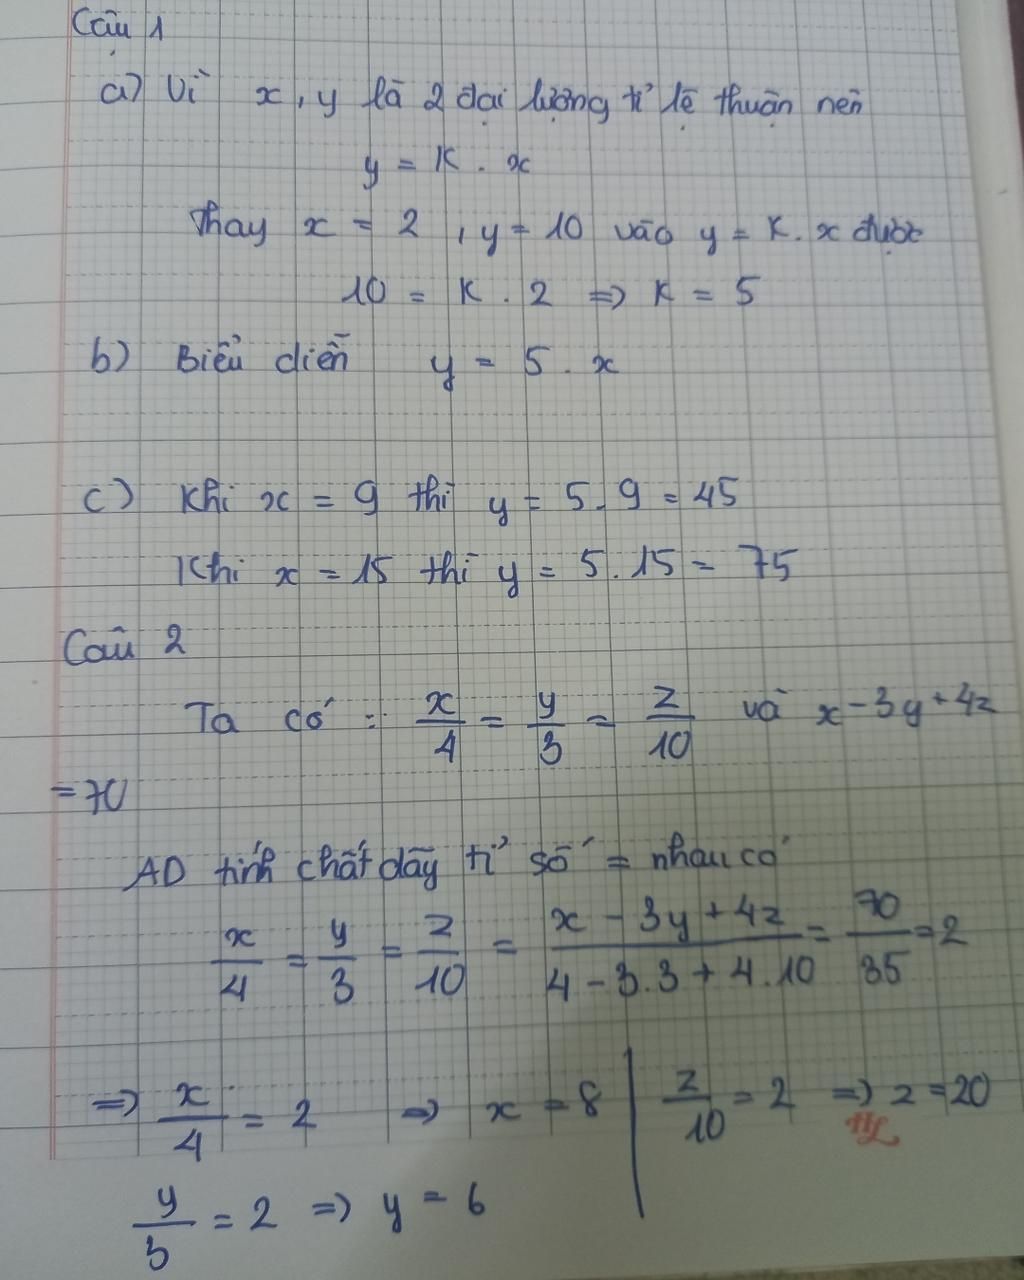 Câu 1
a) Vì x, y là 2 đại lượng tỉ lệ thuận nên
y = K . x
Thay x = 2 , y = 10 vào y = K . x được
10 = K . 2 => K = 5
b) Biểu diễn y = 5 . x
c) Khi x = 9 thì y = 5 . 9 = 45
Khi x = 15 thì y = 5 . 15 = 75
Câu 2
Ta có : x/4 = y/3 = z/10 và x - 3y + 4z
= 70
AD tính chất dãy tỉ số = nhau có
x/4 = y/3 = z/10 = (x - 3y + 4z)/(4 - 3.3 + 4.10) = 70/35 = 2
=> x/4 = 2 => x = 8 | z/10 = 2 => z = 20
y/3 = 2 => y = 6